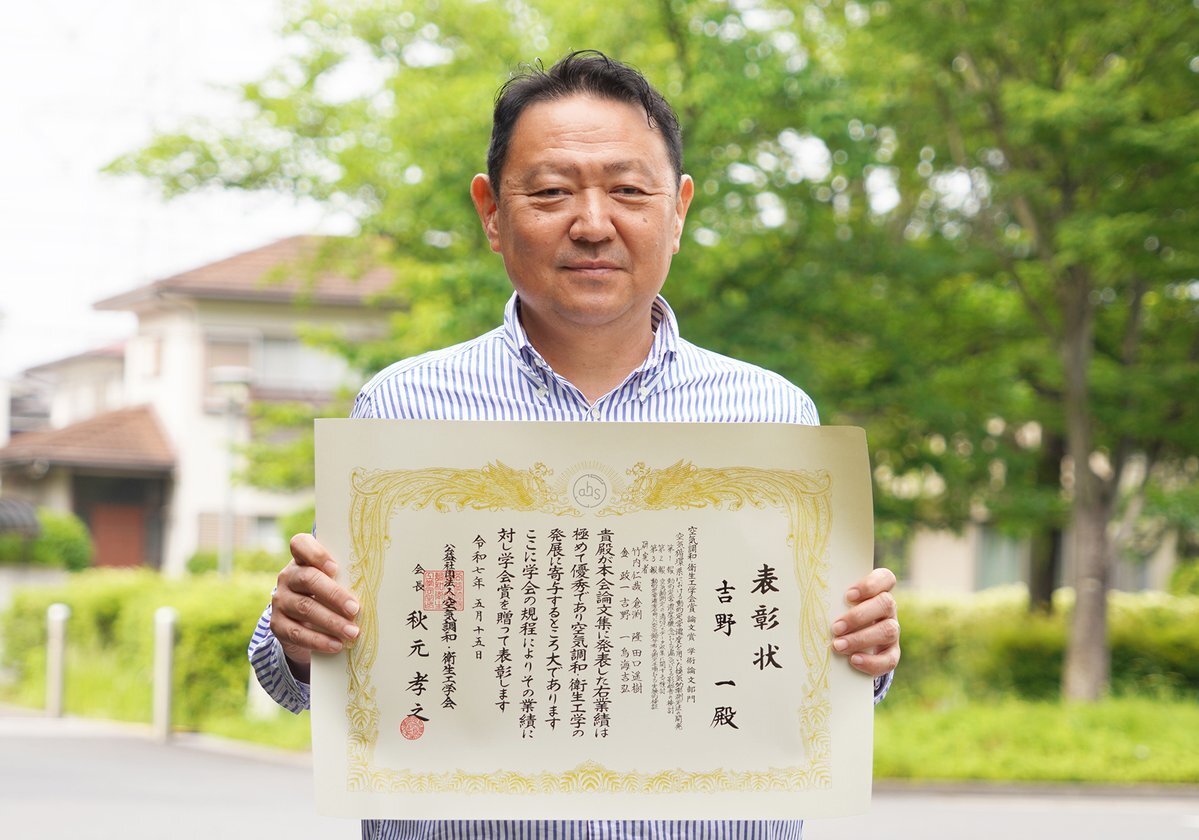 表彰状
吉野 一 殿
空気調和・衛生工学会賞 論文賞 学術論文部門
竹内仁哉 倉渕 隆 田口遥樹
金 政一 吉野 一 鳥海吉弘
貴殿が本会論文集に発表した右業績は
極めて優秀であり空気調和・衛生工学の
発展に寄与するところ大であります
ここに学会の規程によりその業績に
対し学会賞を贈って表彰します
令和七年 五月十五日
公益社団法人空気調和・衛生工学会
会長 秋元孝之